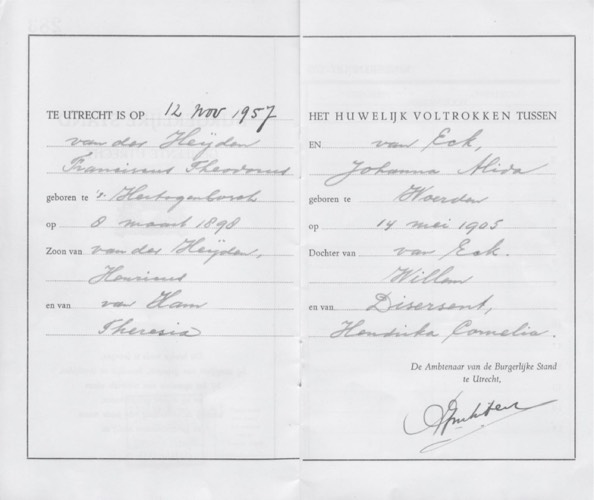 TE UTRECHT IS OP 12 Nov 1957
van der Heijden
Franciscus Theodorus
geboren te 's-Hertogenbosch
op 8 maart 1898
Zoon van van der Heijden,
Henricus
en van van Ham
Theresia
HET HUWELIJK VOLTROKKEN TUSSEN
EN van Eck,
Johanna Alida
geboren te Woerden
op 14 mei 1905
Dochter van van Eck.
Willem
en van Disersent,
Hendrika Cornelia.
De Ambtenaar van de Burgerlijke Stand
te Utrecht,